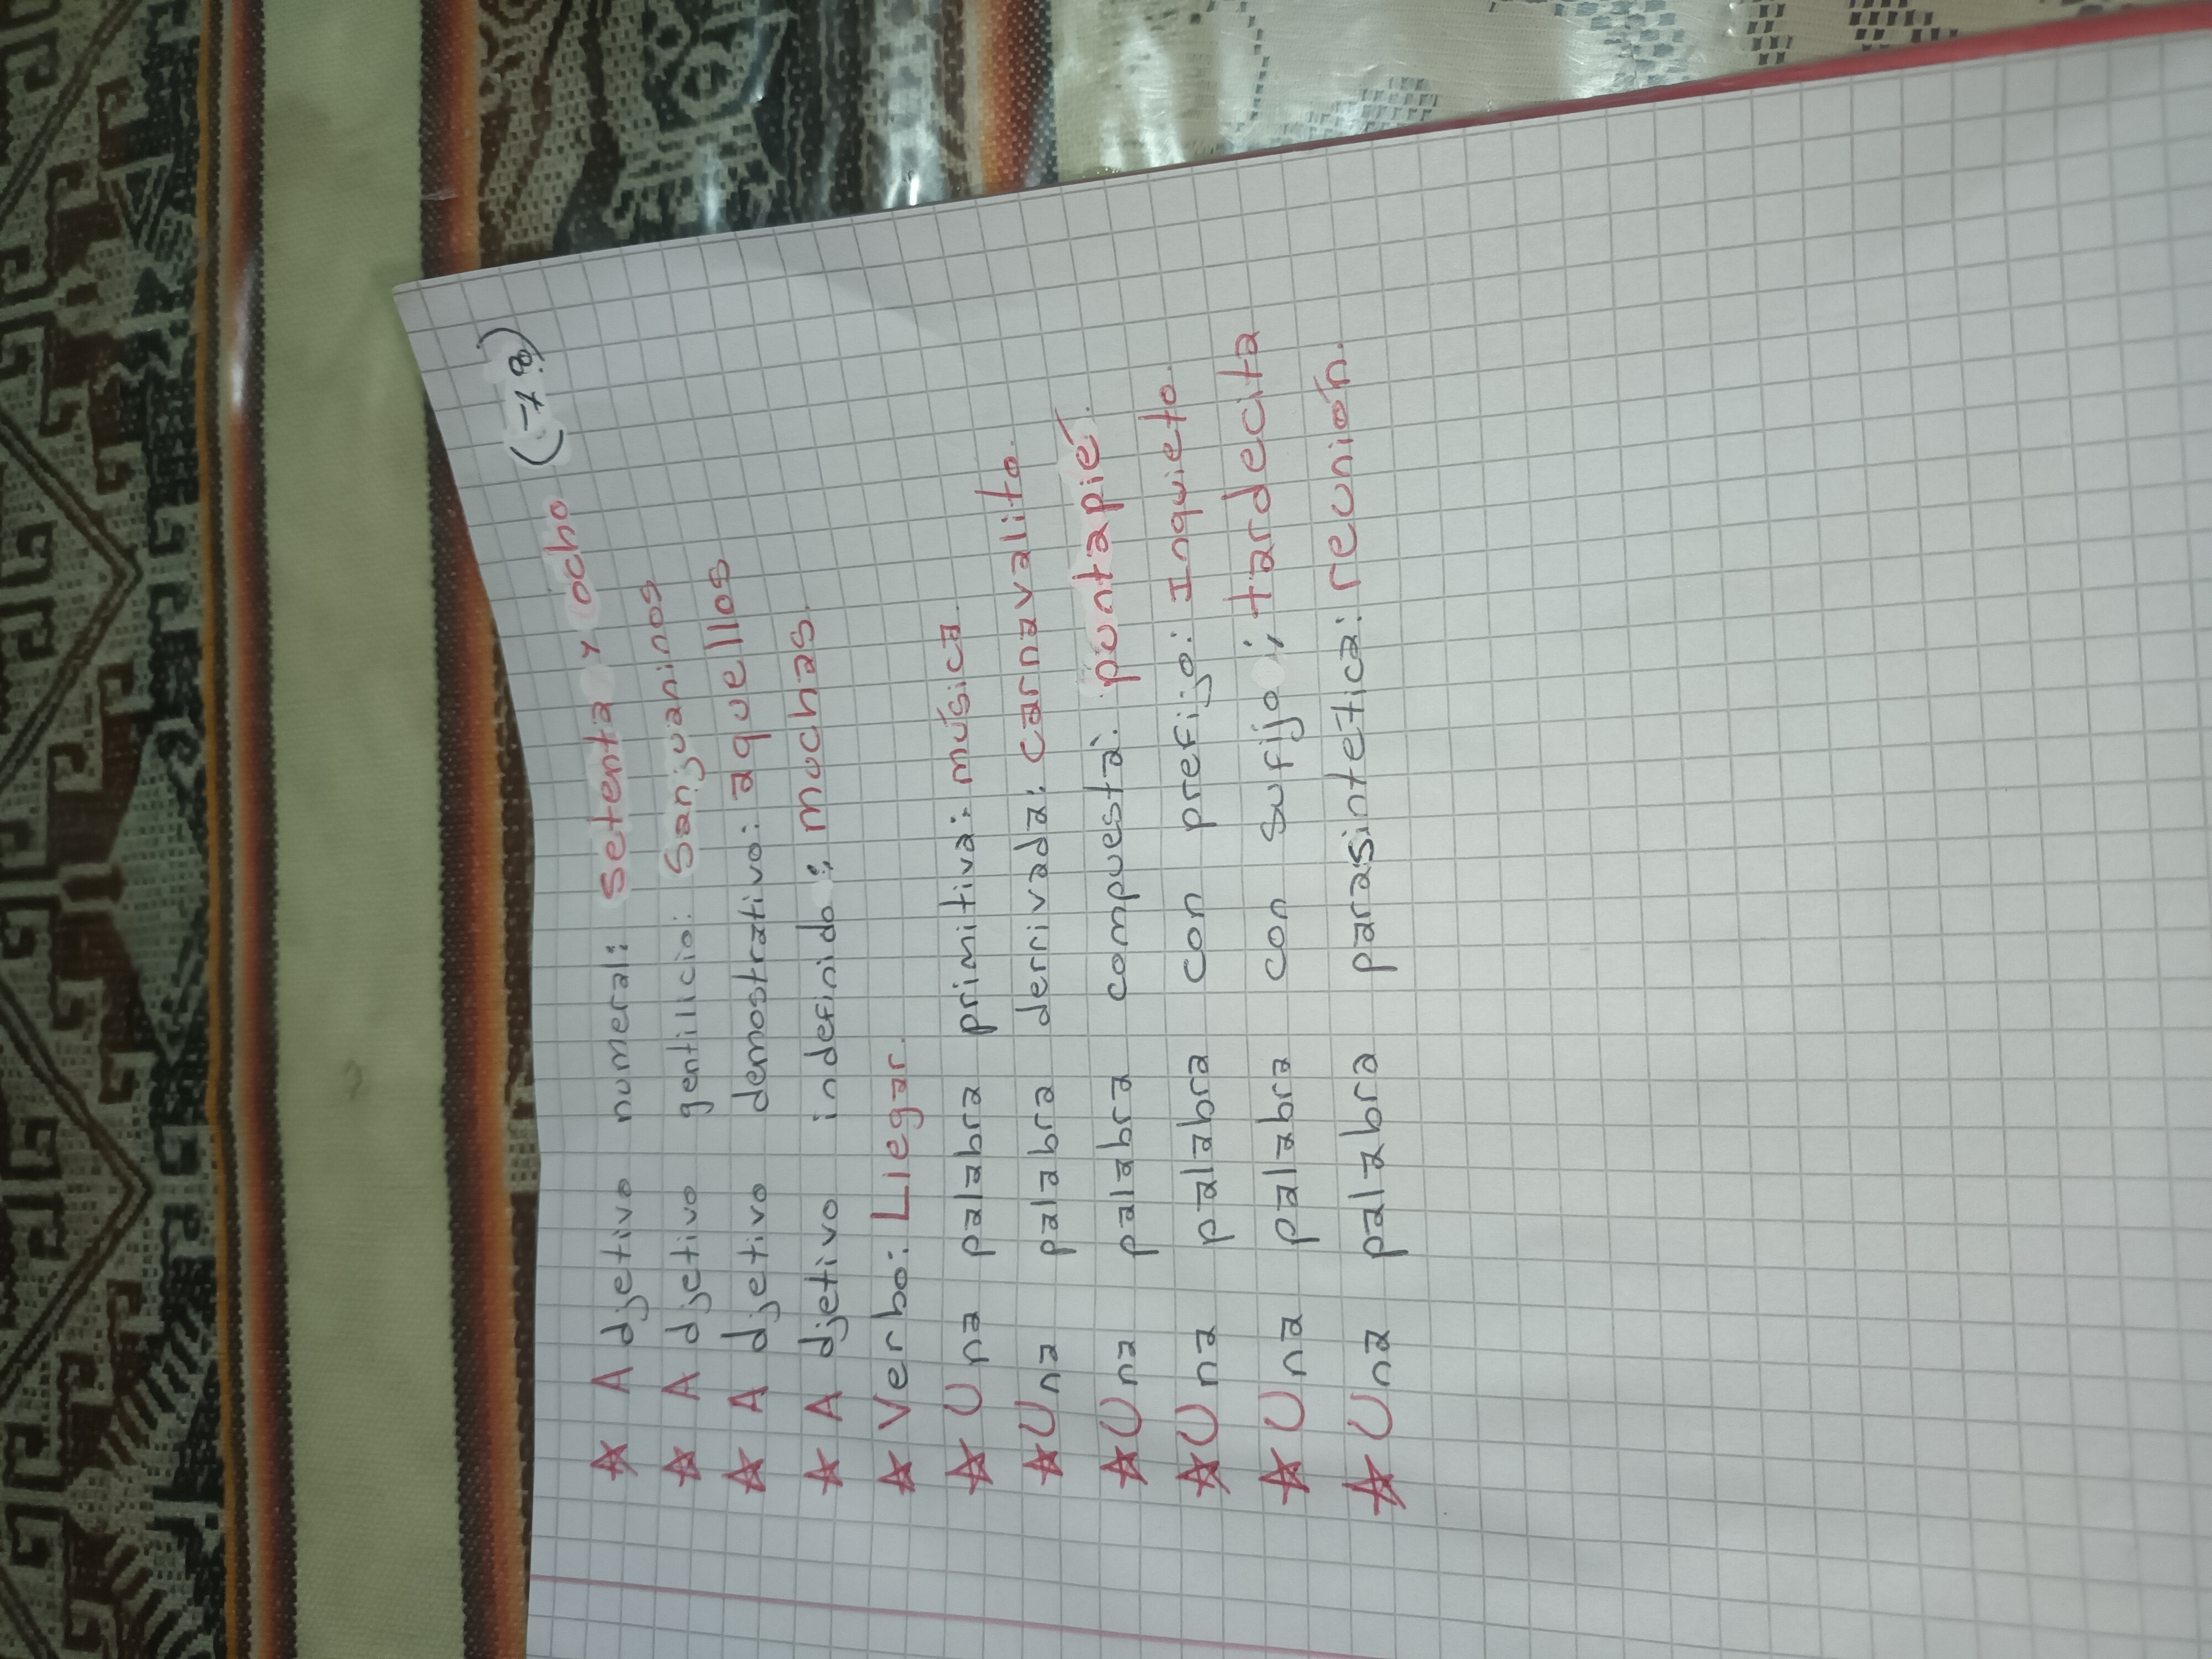 ☆ Adjetivo numeral: setenta y ocho (78)
☆ Adjetivo gentilicio: Sanjuaninos
☆ Adjetivo demostrativo: aquellos
☆ Adjetivo indefinido: muchas.
☆ Verbo: Llegar.
☆ Una palabra primitiva: música.
☆ Una palabra derivada: carnavalito.
☆ Una palabra compuesta: puntapié.
☆ Una palabra con prefijo: Inquieto.
☆ Una palabra con sufijo: tardecita
☆ Una palabra parasintetica: reunión.